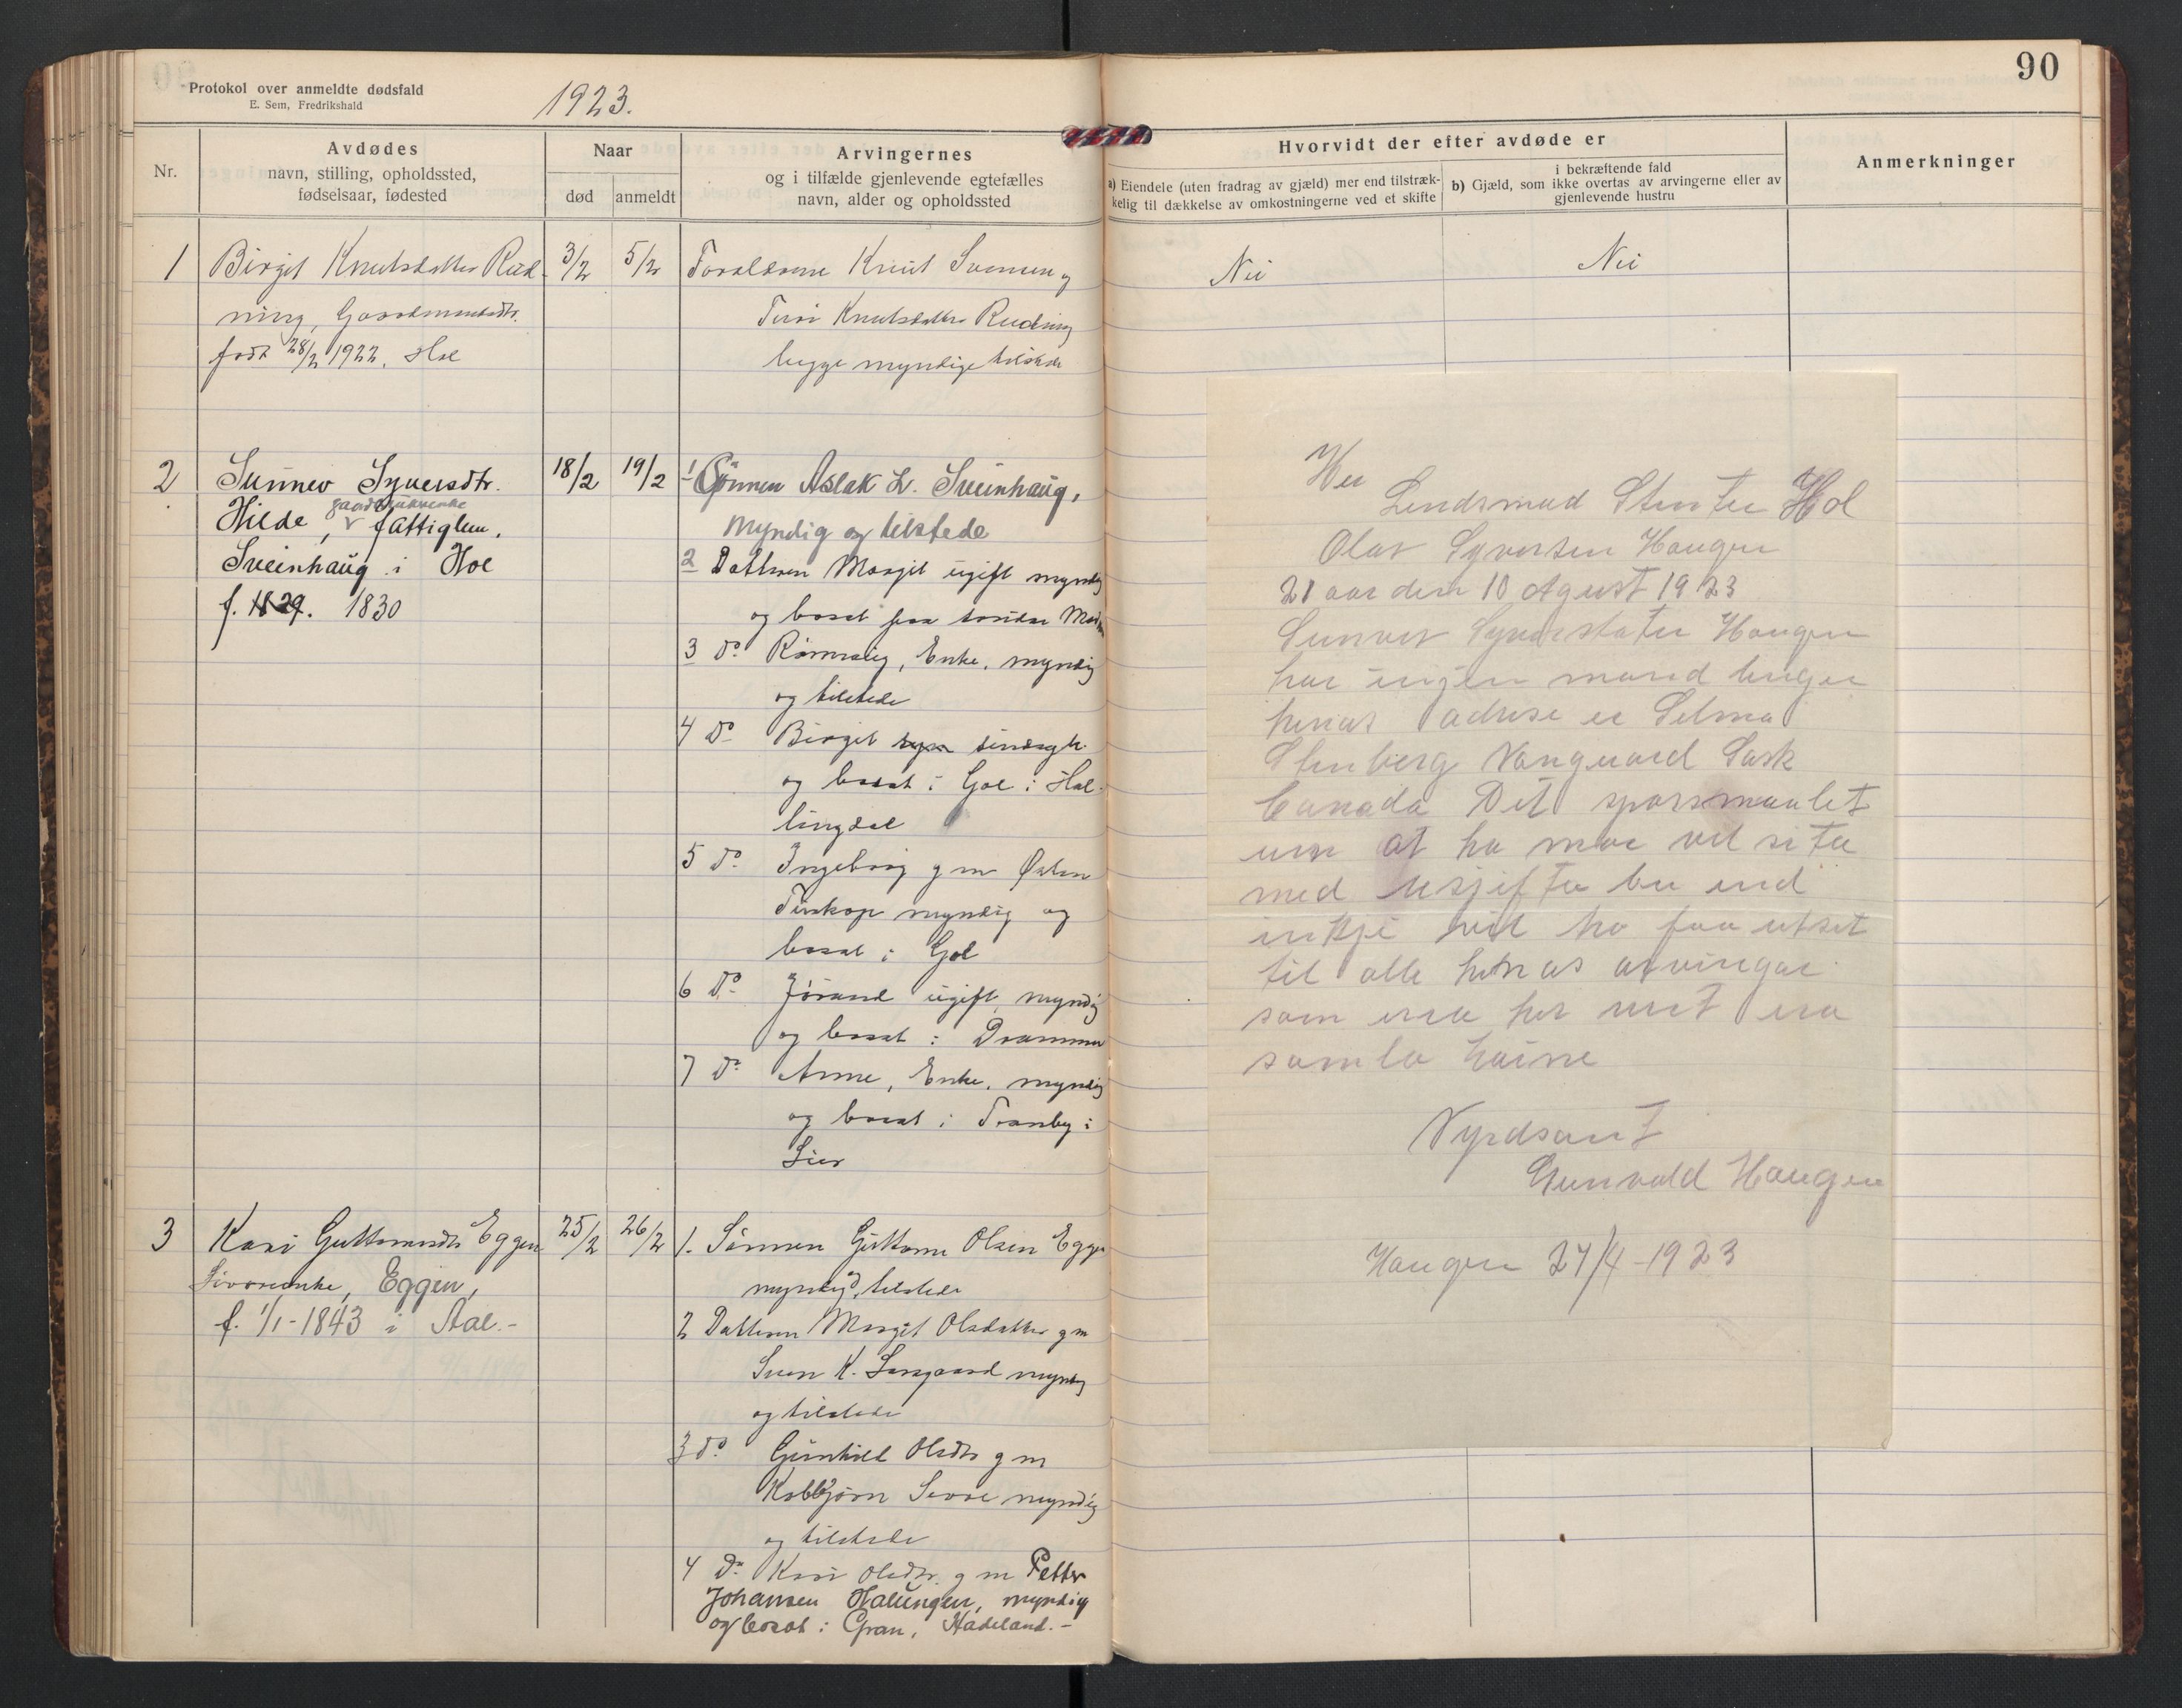 Protokol over anmeldte dødsfald
E. Sem, Fredrikshald
1923.
90
Nr.
Avdødes
navn, stilling, opholdssted,
fødselsaar, fødested
Naar
død
anmeldt
Arvingernes
og i tilfælde gjenlevende egtefælles
navn, alder og opholdssted
Hvorvidt der efter avdøde er
a) Eiendele (uten fradrag av gjæld) mer end tilstræk-
kelig til dækkelse av omkostningerne ved et skifte
i bekræftende fald
b) Gjæld, som ikke overtas av arvingerne eller av
gjenlevende hustru
Anmerkninger
1
Birgit Knutsdatter Rud-
ning, Gaardmandsdtr.
født 28/2 1922. Hol
3/2
5/2
Forældrene Knut Svensen og
Turi Knutsdatter Rudning
begge myndige tilstede
Nei
Nei
2
Sunnev Syversdtr.
gaardbrukerenke
Hilde, v fattiglem,
Sveinhaug i Hol
f. 1829. 1830
18/2
19/2
1 Sønnen Aslak L. Sveinhaug,
Myndig og tilstede
2 Datteren Margit ugift myndig
og bosat paa søndre
3 Do Rønnaug, Enke, myndig
og tilstede
4 Do Birgit sindsyk
og bosat i Gol i Hal-
lingdal
5 Do Ingeborg g m
Tuskop myndig og
bosat i Gol
6 Do Jørand ugift, myndig
og bosat i Drammen
7 Do Anne, Enke, myndig
og bosat i Tranby i
Lier
3
Kari Guttormsdtr Eggen
Livøreenke, Eggen,
f. 1/1-1843 i Aal.-
25/2
26/2
1. Sønnen Guttorm Olsen Eggen
myndig og tilstede
2 Datteren Margit Olsdatter g m
Sven K. Sangaard myndig
og tilstede
3 Do Gunhild Olsdtr g m
Kolbjørn Sevre myndig
og tilstede
4 Do Kari Olsdtr. g m Petter
Johansen Halungen, myndig
og bosat i Gran, Hadeland.-
Her
Lendsmad Stente Hol
Olav Syversen Haugen
21 aar den 10 Agust 1923
Sunnev Syverstater Haugen
har ingen mand lenger
henas adrese er Selma
Stenberg Vanguard Sask
Canada Det sporsmaalet
um at ho mor vil sita
med usjifta bu end
inkje vil ho faa utset
til alle henas arvingar
som era her mst era
samla haime
Vyrdsamt
Gunvald Haugen
Haugen 27/4-1923